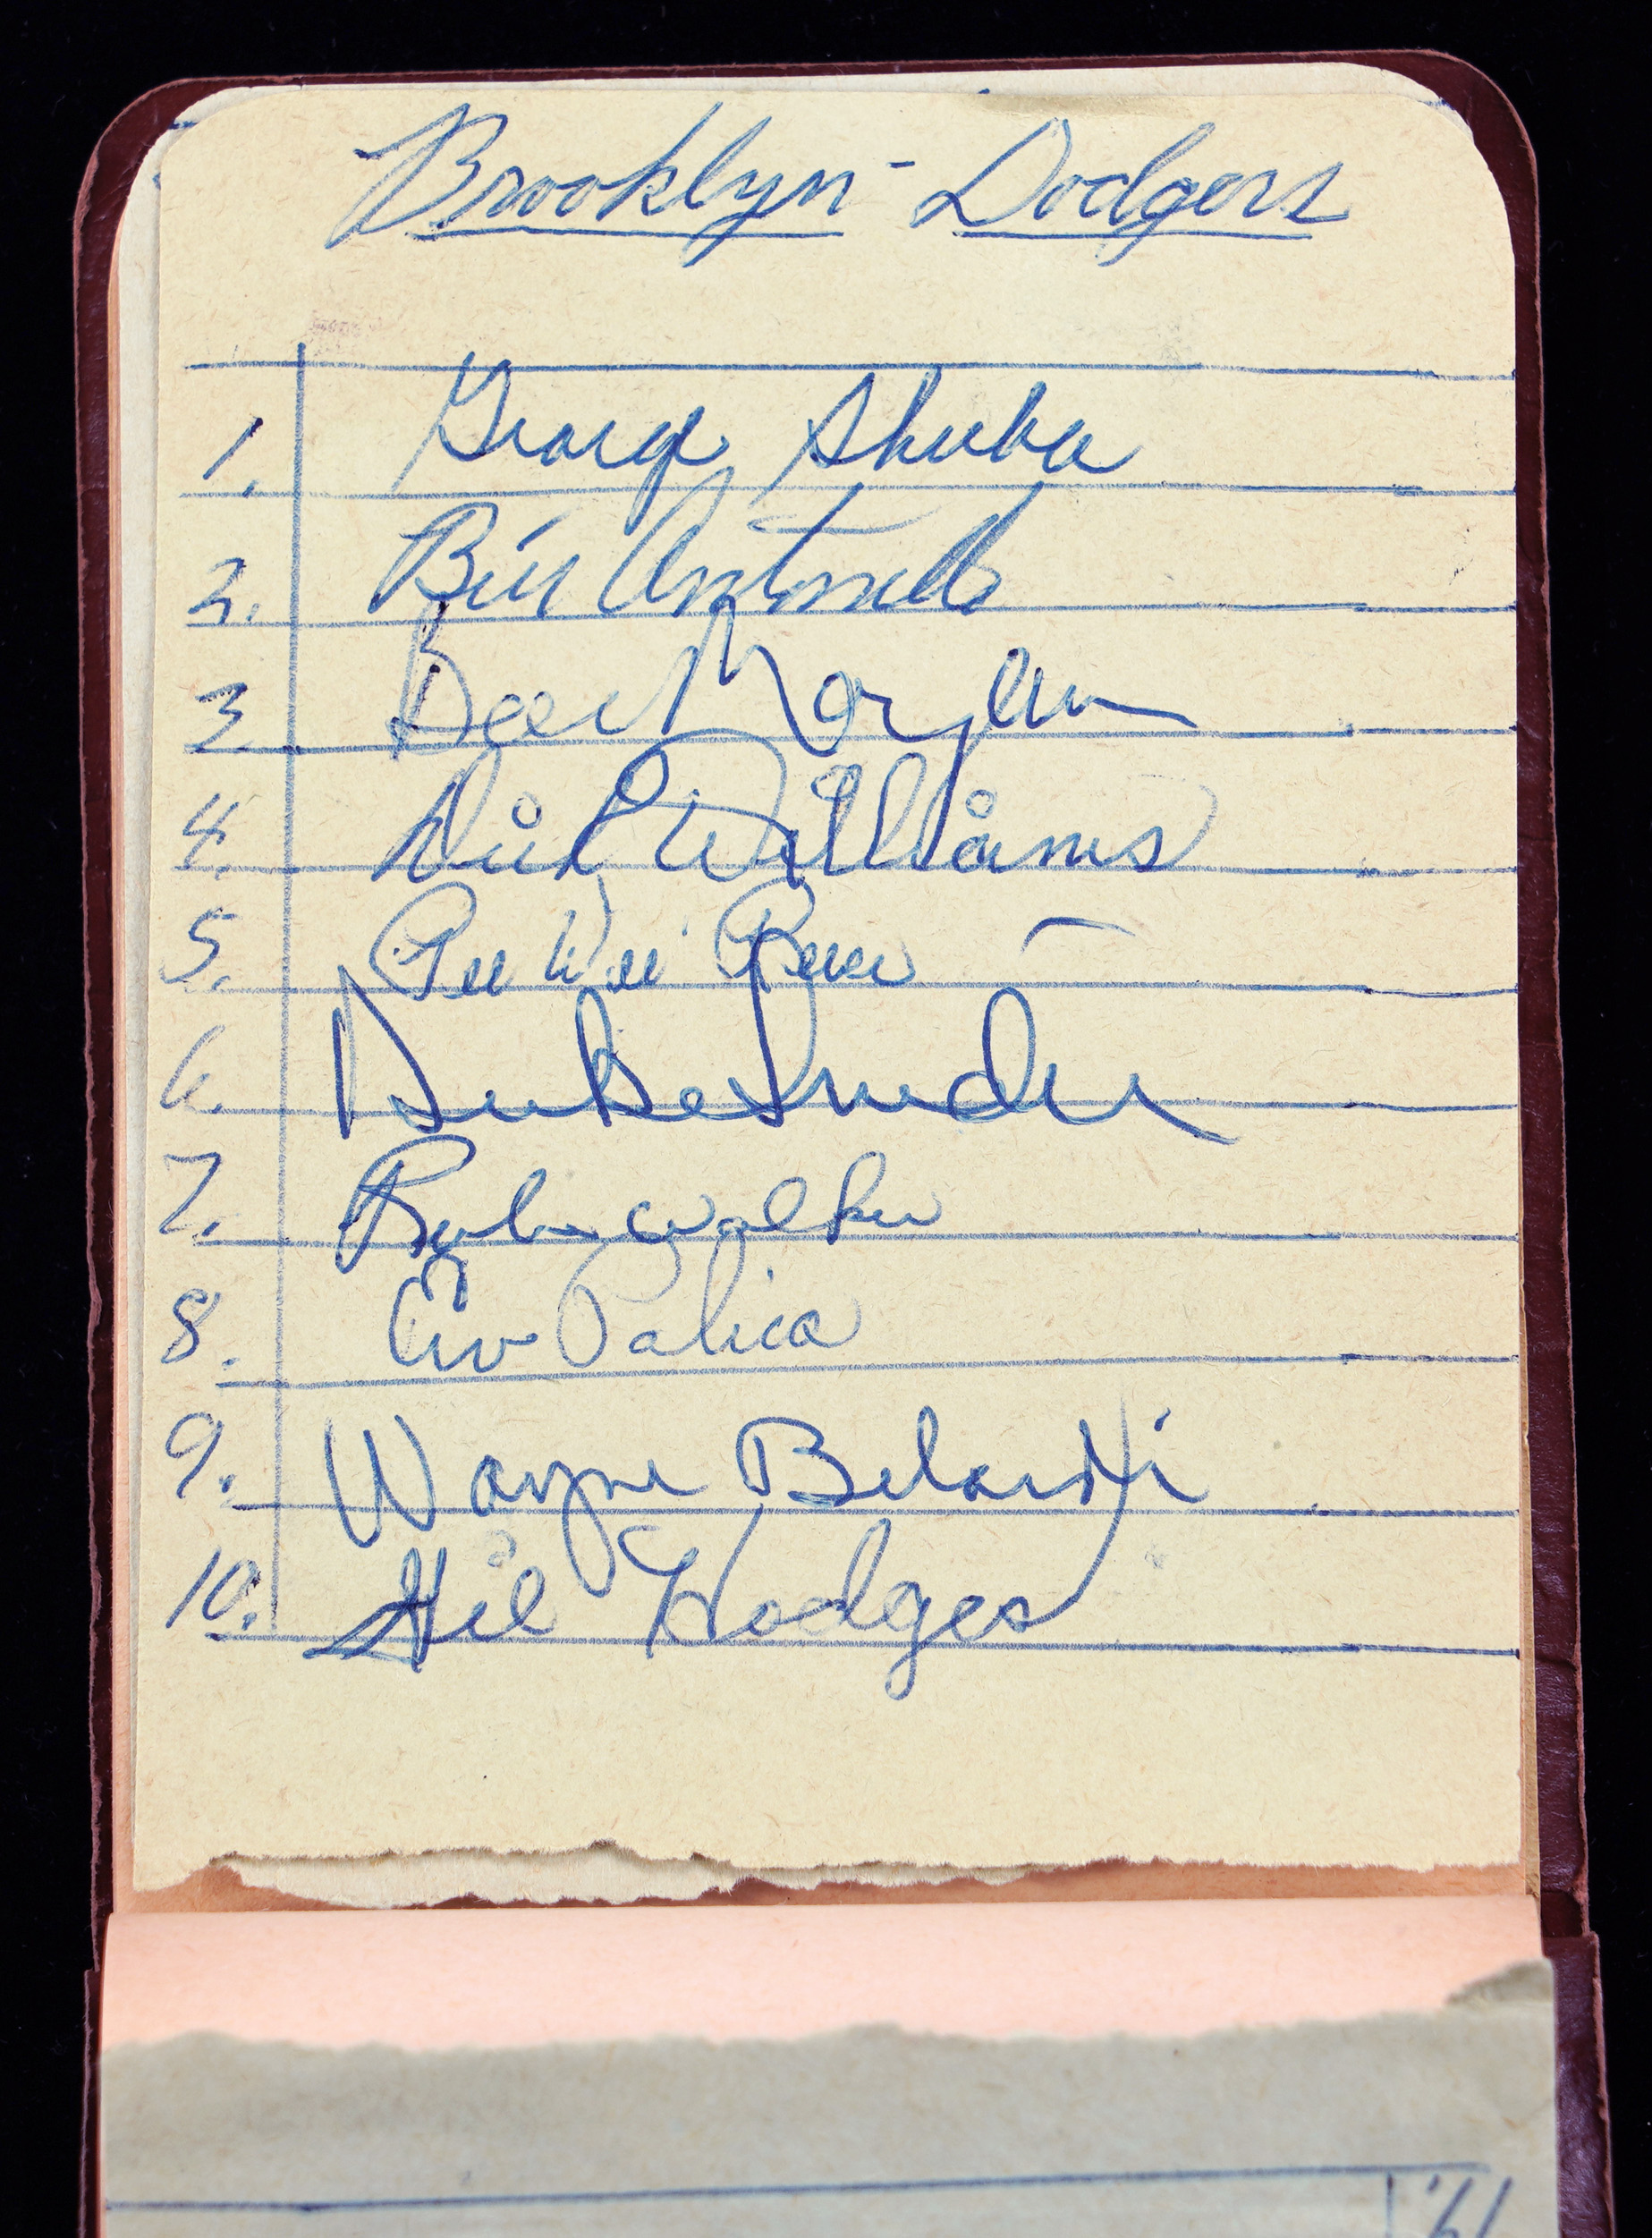 Brooklyn - Dodgers
1. George Shuba
2. Bill Antonello
3 Bobby Morgan
4. Dick Williams
5. Pee Wee Reese
6. Duke Snider
7. Rube Walker
8. Erv Palica
9. Wayne Belardi
10. Gil Hodges